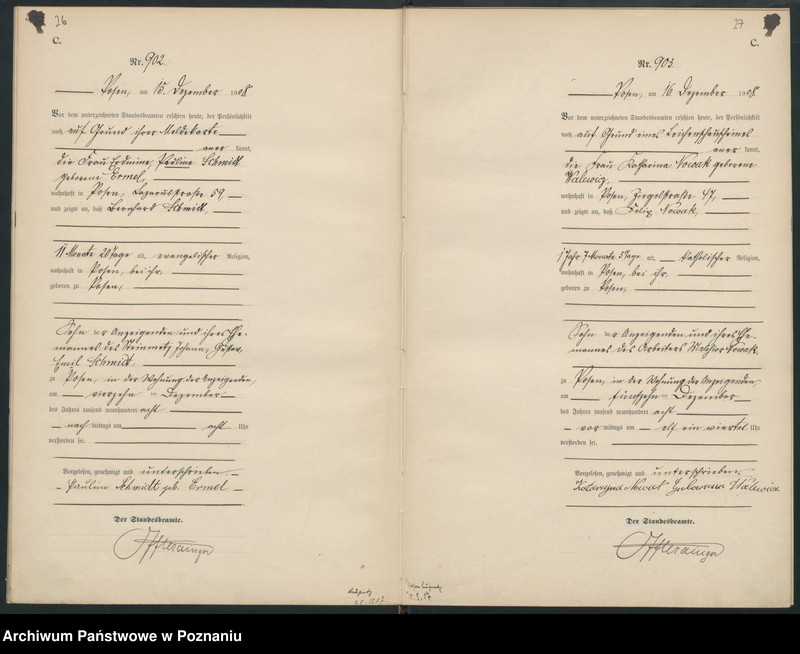 26
C.
Nr. 902.
Posen, am 15. Dezember 1908
Vor dem unterzeichneten Standesbeamten erschien heute, der Persönlichkeit
nach auf Grund ihrer Meldekarte
kannt,
die Frau Erdmine, Pauline Schmidt
geborene Ermel,
wohnhaft in Posen, Lazarusstraße 59,
und zeigte an, daß Bernhard Schmidt,
11 Monate 20 Tage alt, evangelischer Religion,
wohnhaft in Posen, bei ihr,
geboren zu Posen,
Sohn der Anzeigenden und ihres Ehe-
mannes des Steinmetz Johann, Gustav,
Emil Schmidt,
zu Posen, in der Wohnung der Anzeigenden,
am vierzehn ten Dezember
des Jahres tausend neunhundert acht
nach mittags um acht Uhr
verstorben sei.
Vorgelesen, genehmigt und unterschrieben
Pauline Schmidt geb. Ermel
Der Standesbeamte.
27
C.
Nr. 903.
Posen, am 16. Dezember 1908
Vor dem unterzeichneten Standesbeamten erschien heute, der Persönlichkeit
nach auf Grund eines Leichenschauscheines
kannt,
die Frau Katharina Nowak geborene
Walewicz,
wohnhaft in Posen, Ziegelstraße 47,
und zeigte an, daß Felix Nowak,
1 Jahr 7 Monate 5 Tage alt, katholischer Religion,
wohnhaft in Posen, bei ihr,
geboren zu Posen,
Sohn der Anzeigenden und ihres Ehe-
mannes des Arbeiters Nowak,
zu Posen, in der Wohnung der Anzeigenden
am fünfzehn ten Dezember
des Jahres tausend neunhundert acht
vor mittags um elf ein viertel Uhr
verstorben sei.
Vorgelesen, genehmigt und unterschrieben
Katarzyna Nowak
Der Standesbeamte.
Archiwum Państwowe w Poznaniu